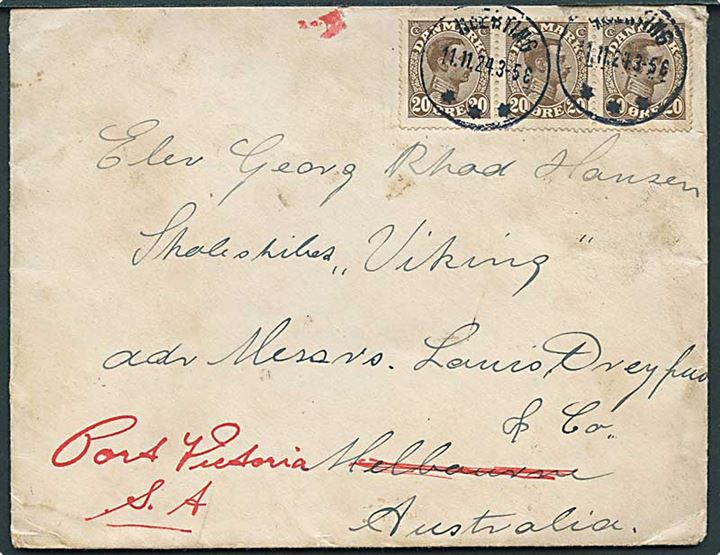 DANMARK DANMARK DANMARK
20 ØRE 20 20 ØRE 20 20 ØRE 20
HJERTING HJERTING
11.11.24.3-5E 11.11.24.3-5E
Elev Georg Rhod Hansen
Skoleskibet „Viking"
adr Messrs. Louis Dreyfus
& Co.
Port Victoria Melbourne
S.A
Australia.